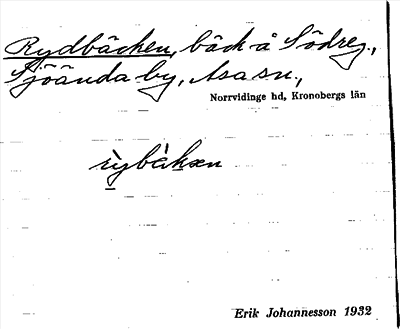 Rydbäcken, bäck å Södreg.,
Sjöända by, Asa sn.,
Norrvidinge hd, Kronobergs län
rỳbɛ̀kən
Erik Johannesson 1932